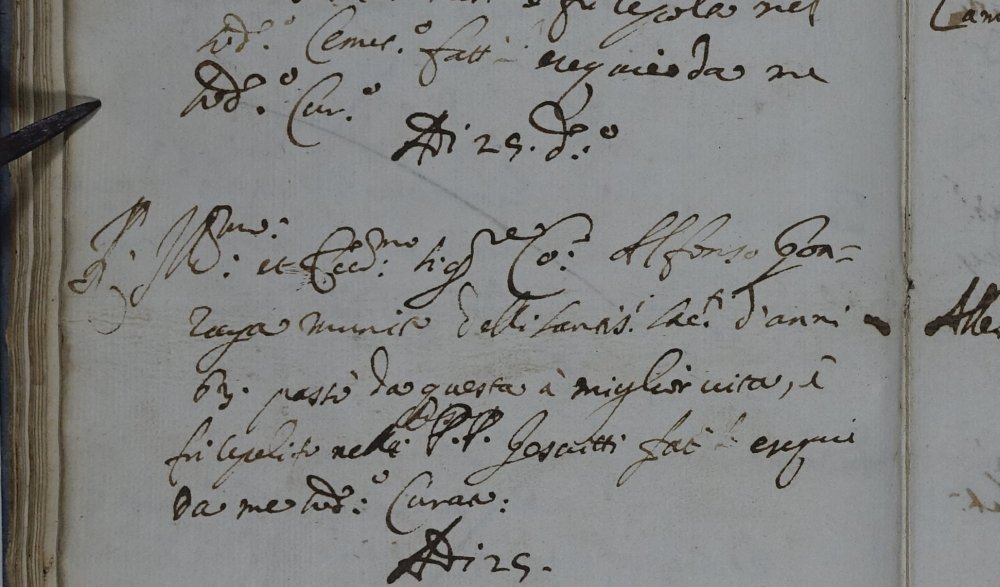 fu sepolta nel
sud.º Cemet.º fatt exequie da me
sud.º Cur.º
Adi 25. d.º
Ill.mo et Ecc.mo Sig.re Co: Alfonso Gon=
zaga munito delli santis.i Sac.ti d'anni
63. passò da questa à miglior vita, e
fu sepelito nell P.P. Gesuitti fat exequi
da me sud.º Curat:
Adi 25.